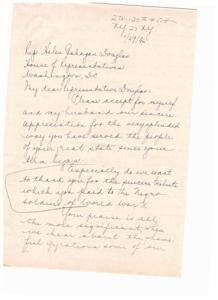 Rep. Helen Gahagan Douglas
House of Representatives
Washington, D.C.
My dear Representative Douglas:
Please accept for myself
and my husband our sincere
appreciation for the very splendid
way you have served the people
of your great state since your
Especially do we want
to thank you for the sincere tribute
which you paid to the Negro
soldiers of World War II.
Your praise is all
the more significant when
we hear about the shame-
ful gyrations some of our